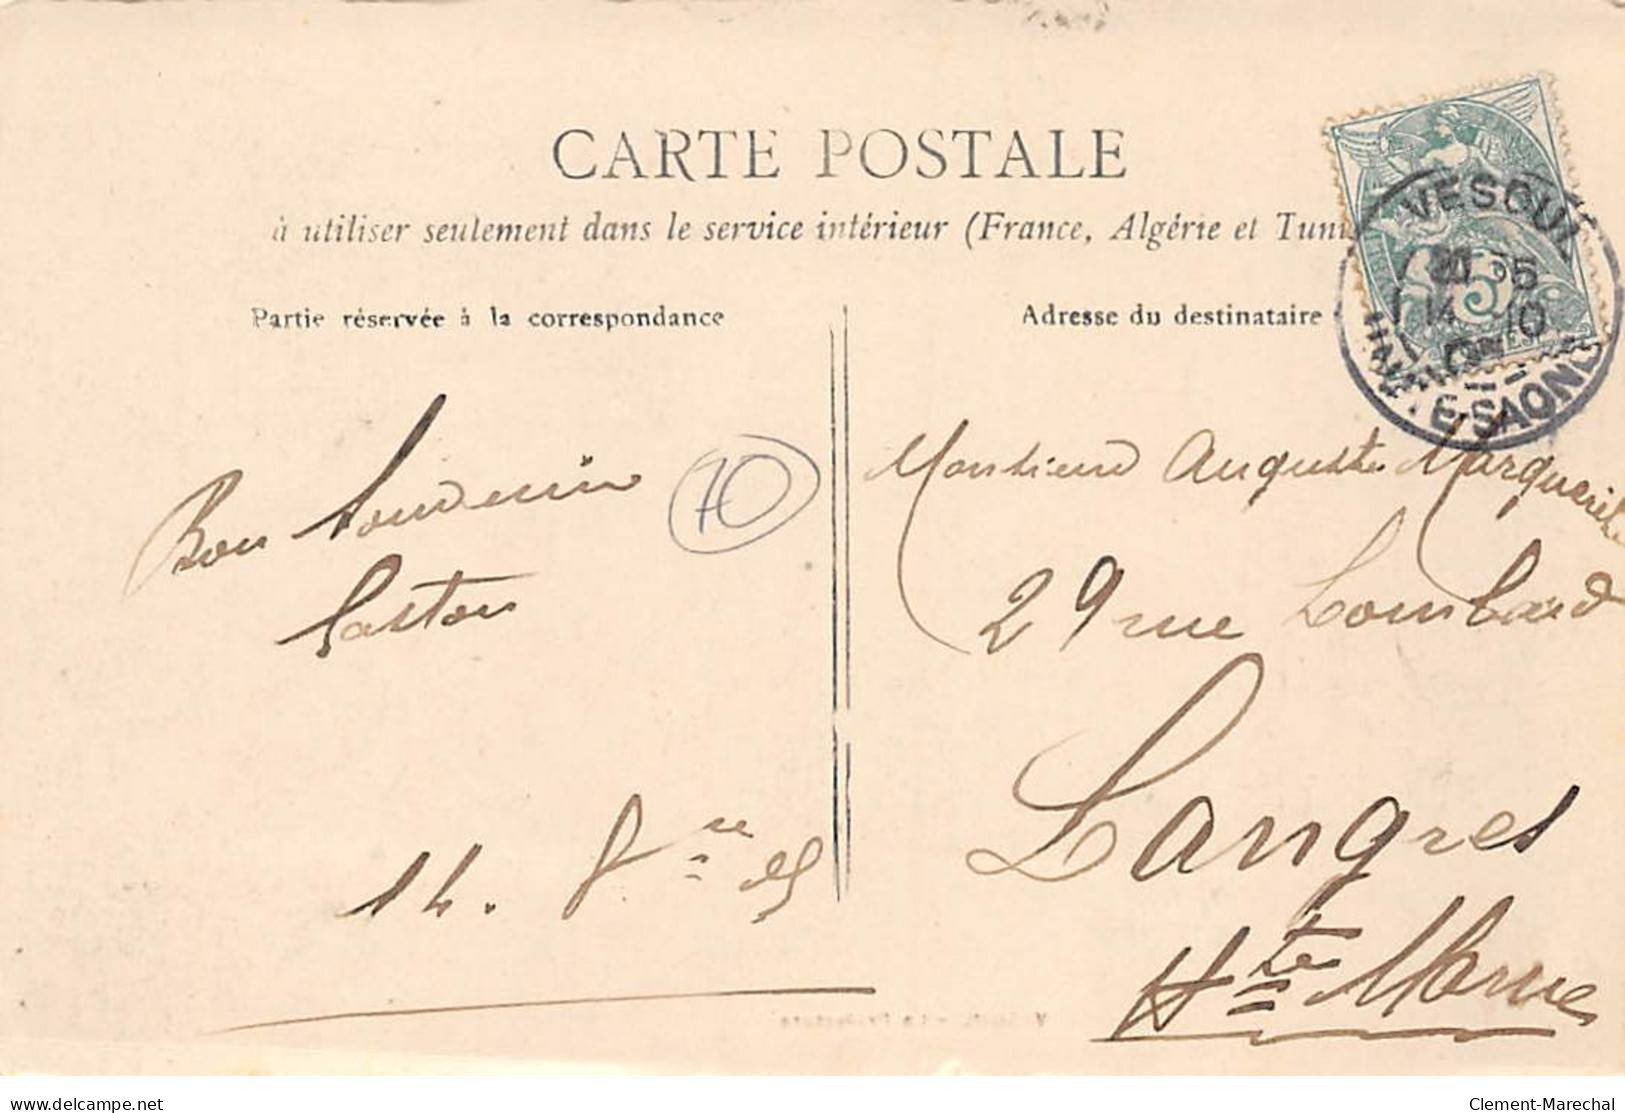 CARTE POSTALE
à utiliser seulement dans le service intérieur (France, Algérie et Tuni
Partie réservée à la correspondance
Adresse du destinataire
VESOUL
5
14 - 10
05
HAUTE-SAONE
Bon Souvenir
Gaston
70
14. 8bre 05
Monsieur Auguste Marguerite
29 rue Lombard
Langres
Hte Marne
Vesoul. - La Préfecture
Clement-Marechal
delcampe.net